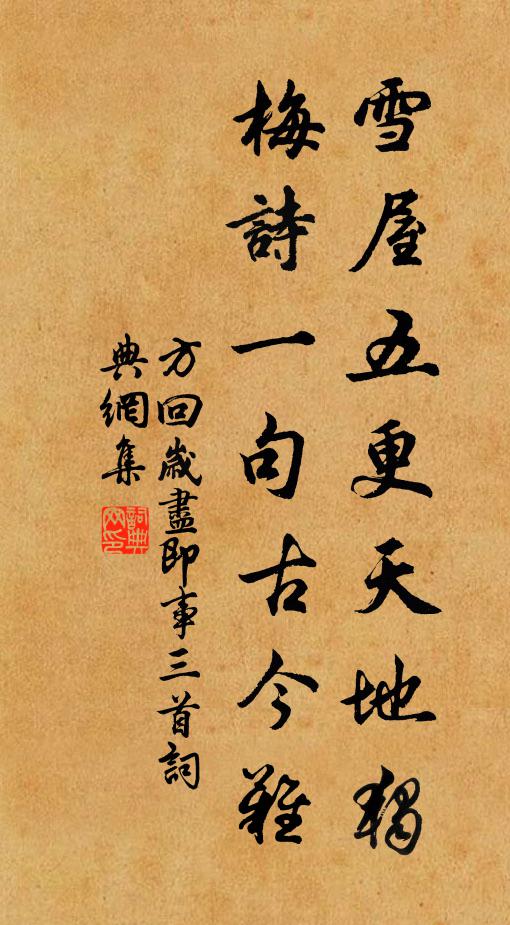 雪屋五更天地獨
梅詩一句古今難
方回歲盡即事三首詞
典網集
詞典網印